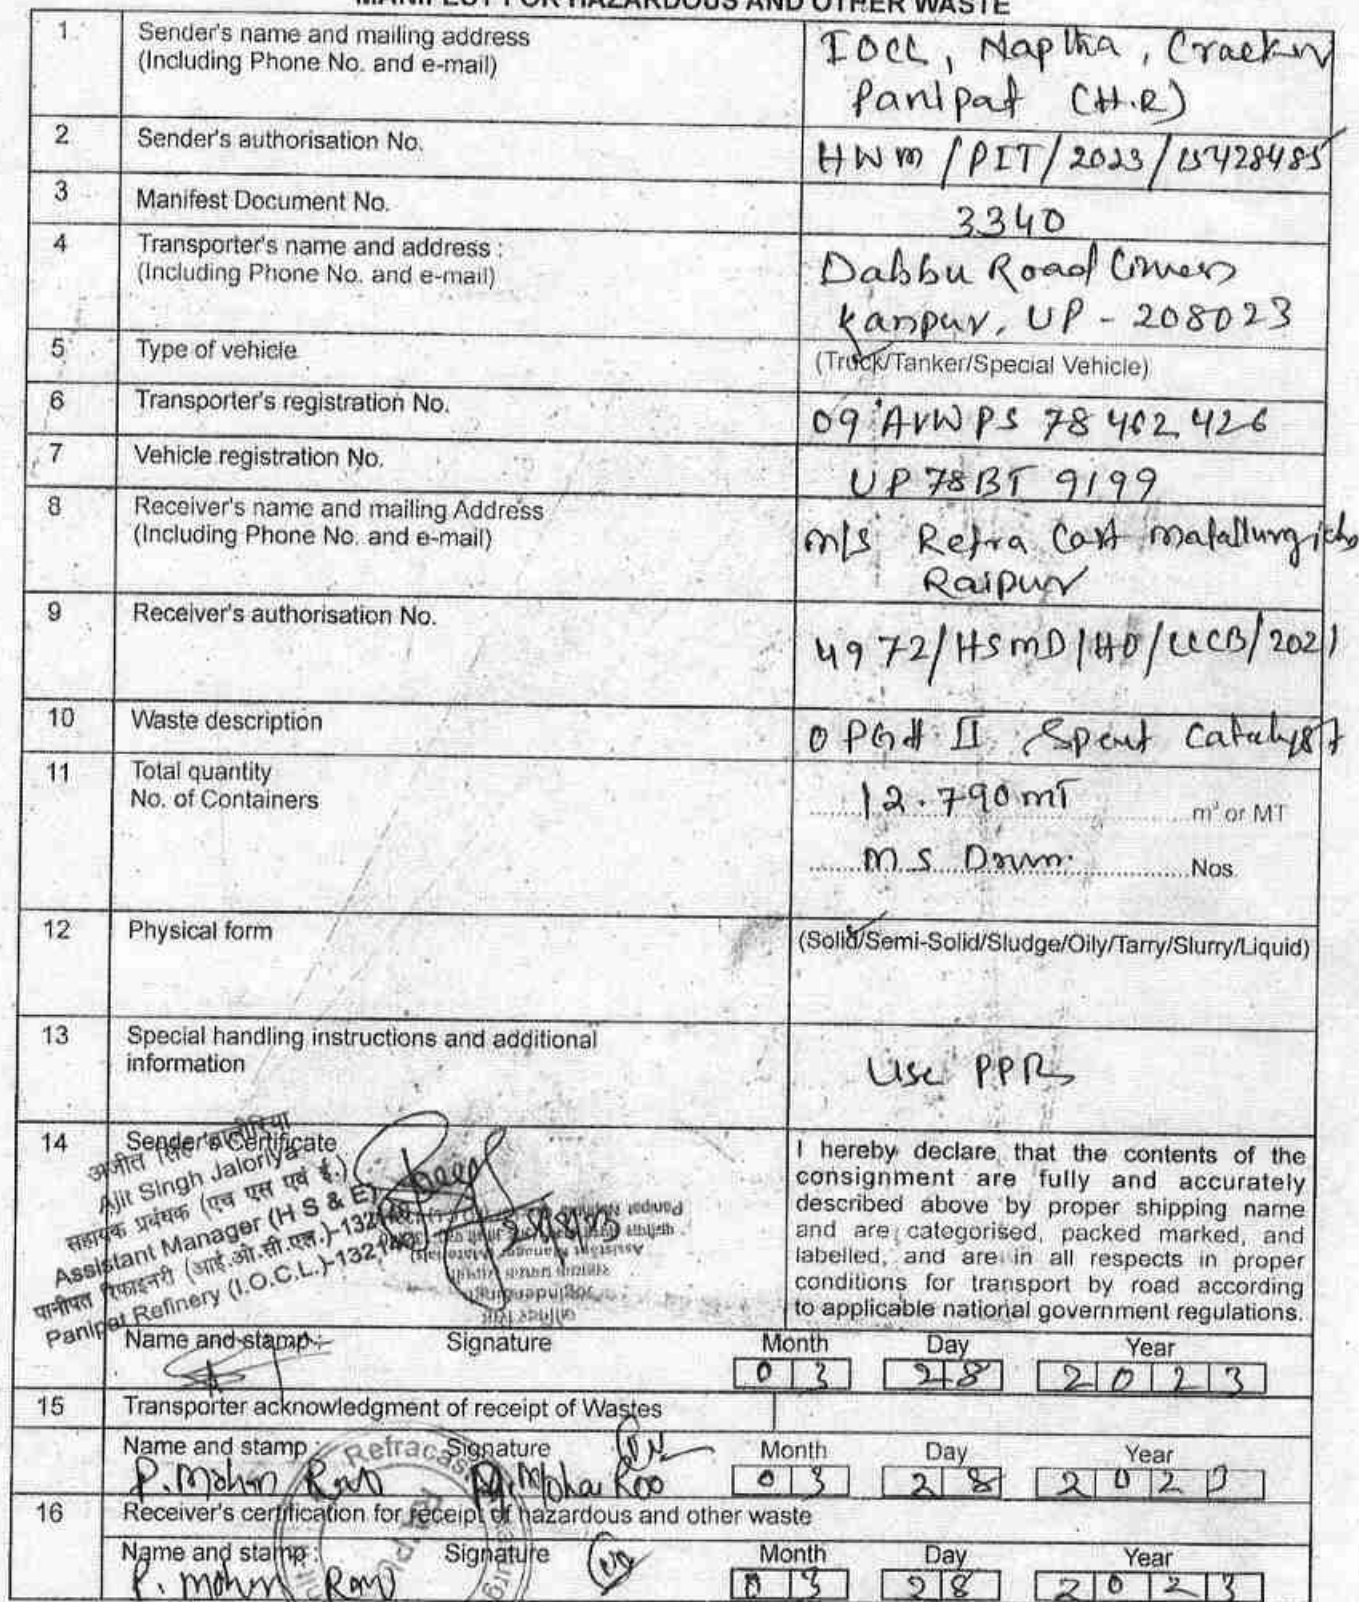 MANIFEST FOR HAZARDOUS AND OTHER WASTE
1. Sender's name and mailing address (Including Phone No. and e-mail)
IOCL, Naptha, Cracker
Panipat (H.R)
2 Sender's authorisation No.
HWM/PIT/2023/15428485
3 Manifest Document No.
3340
4 Transporter's name and address :
(Including Phone No. and e-mail)
Dabbu Road
Kanpur, UP - 208023
5 Type of vehicle
(Truck/Tanker/Special Vehicle)
6 Transporter's registration No.
09 AVWPS 78 462 426
7 Vehicle registration No.
UP78BT 9199
8 Receiver's name and mailing Address
(Including Phone No. and e-mail)
m/s Refra Cast
Raipur
9 Receiver's authorisation No.
4972/HSMD/HO/CECB/2021
10 Waste description
II Spent Catalyst
11 Total quantity
No. of Containers
12.790 mT m³ or MT
M.S Drum. Nos.
12 Physical form
(Solid/Semi-Solid/Sludge/Oily/Tarry/Slurry/Liquid)
13 Special handling instructions and additional
information
Use
14 Sender's Certificate
I hereby declare that the contents of the
consignment are fully and accurately
described above by proper shipping name
and are categorised, packed marked, and
labelled, and are in all respects in proper
conditions for transport by road according
to applicable national government regulations.
अजीत सिंह जालोरिया
Ajit Singh Jaloriya
सहायक प्रबंधक (एच एस एवं ई.)
Assistant Manager (H S & E)
पानीपत रिफाइनरी (आई.ओ.सी.एल.)-132140
Panipat Refinery (I.O.C.L.)-132140
Name and stamp : Signature Month Day Year
03 28 2023
15 Transporter acknowledgment of receipt of Wastes
Name and stamp : Signature Month Day Year
P. Mohan Rao P. Mohan Rao 03 28 2023
16 Receiver's certification for receipt of hazardous and other waste
Name and stamp : Signature Month Day Year
P. Mohan Rao 03 28 2023